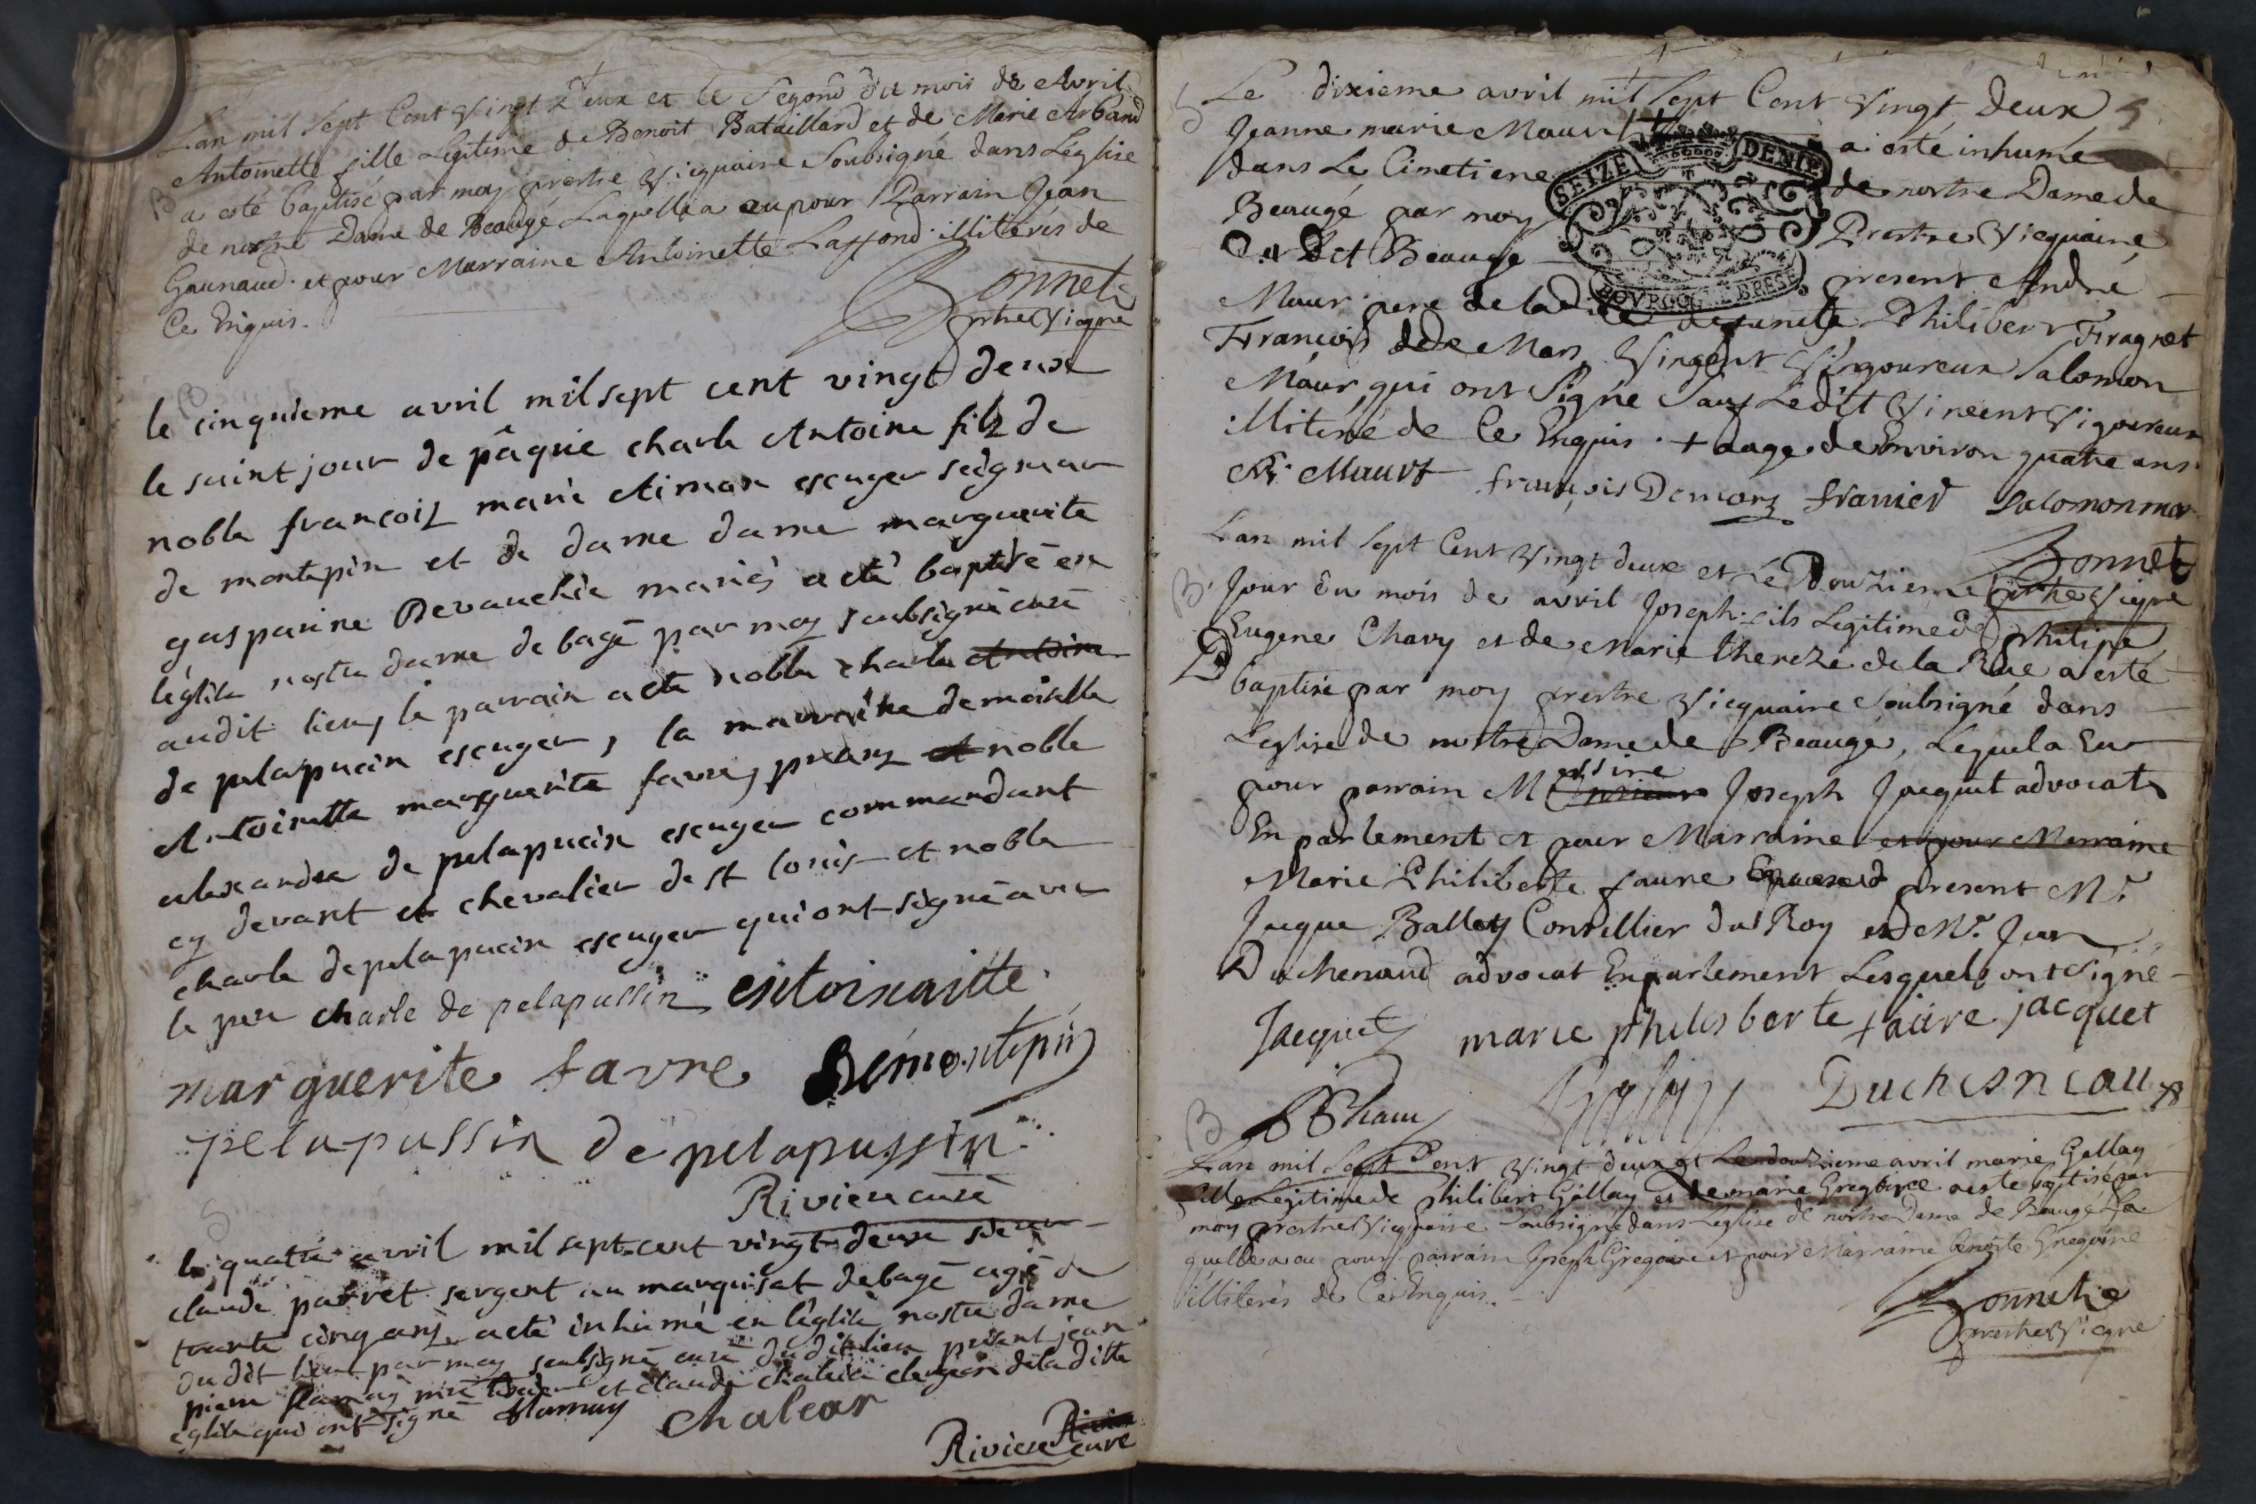 Lan mil sept Cent Vingt Deux et le Segond du mois de Avril
Antoinette fille Legitime de Benoit Bataillard et de Marie Arband
a esté baptisé par moy prestre Vicquaire Soubsigné dans Léglise
de nostre Dame de Beaugé Laquelle a eu pour Parrain Jean
Gaunaud. et pour Marraine Antoinette Laffond illiterés de
Ce Enquis.
Bonnet
prhe Vicqre
B
le cinquieme avril mil sept cent vingt deux
le saint jour de pâque charle Antoine filz de
noble françoiz marie Aimon escuyer seigneur
de montepin et de dame dame marguerite
gasparine Devauchie mariés a eté baptisé en
léglise nostre dame de bagé par moy soubsigné curé
audit lieu, le parrain a eté noble charle Antoine
de pelapucin escuyer, la marraine demoiselle
Antoinette marguerite favre, puanz et noble
alexandre de pelapucin escuyer commandant
cy devant et chevalier de st louis et noble
charle de pelapucin escuyer qui ont signé avec
le pere charle de pelapussin entoinaitte
marguerite favre Démontepin
pelapussin de pelapussin
Riviere curé
S
le quatre avril mil sept cent vingt deux sieur
claude parret sergent au marquisat de bagé agé de
trante cinq ans a eté inhumé en léglise nostre dame
dudit lieu par moy soubsigné curé dudit lieu présent jean
pierre flamay et claude chalear clergeon de la ditte
eglise qui ont signé flamay chalear
Riviere curé
S
Le dixieme avril mil sept Cent Vingt Deux
Jeanne marie Maur a esté inhumé
dans Le Cimetiere de nostre Dame de
Beaugé par moy Prestre Vicquaire
Du Dit Beaugé present André
Maur pere de la Ditte defuncte Philibert Fragnet
François de Mars Vingent Vigoureux Salomon
Maur, qui ont Signé Sauf Ledit Vincent Vigoureux
illiteré de Ce Enquis. + aage de Environ quatre ans
SEIZE DENIE
BOVRGOG BRESE
A. Maurt françois Demarz franier Salomon mor
Bonnet
prhe Vicqre
B
Lan mil sept Cent Vingt deux et Le Douzieme
Jour du mois de avril Joseph fils Legitime de philipe
Eugene Chavy et de Marie thereze de la Rue a esté
baptisé par moy prestre Vicquaire Soubsigné dans
Leglise de nostre Dame de Beaugé, Lequel a Eu
pour parrain Messire Joseph Jacquet advocat
En parlement et pour Marraine et pour Marraine
Marie Philiberte faure present Mr.
Jacque Balley Conseillier du Roy et de Mr. Jean
Duchenaud advocat En parlement Lesquels ont Signé
Jacquet marie philisberte faure jacquet
Chavy Balley Duchesneau
B
Lan mil Sept Cent Vingt deux et Le douzieme avril marie Gallay
fille Legitime de Philibert Gallay et de marie Gregoire a esté baptisé par
moy prestre Vicquaire Soubsigné dans Leglise de nostre Dame de Beaugé La
quelle a eu pour parrain Joseph Gregoire et pour Marraine benoite Gregoire
illiterés de Ce Enquis.
Bonnet
prestre Vicqre